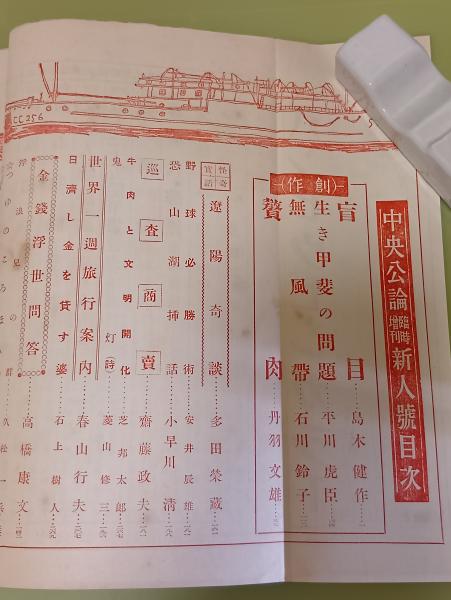 CC256
中央公論 臨時增刊 新人號目次
(創作)
盲目……島木健作
生き甲斐の問題……平川虎臣
無風帶……石川鈴子
贅肉……丹羽文雄
怪奇實話 遼陽奇談……多田榮藏
野球必勝術……安井辰雄
恐山湖揷話……小早川淸
巡査商賣……齋藤政夫
牛肉と文明開化……芝邦太郎
鬼灯(詩)……菱山修三
世界一週旅行案内……春山行夫
日濟し金を貸す婆……石上樹人
金錢浮世問答……高橋康文